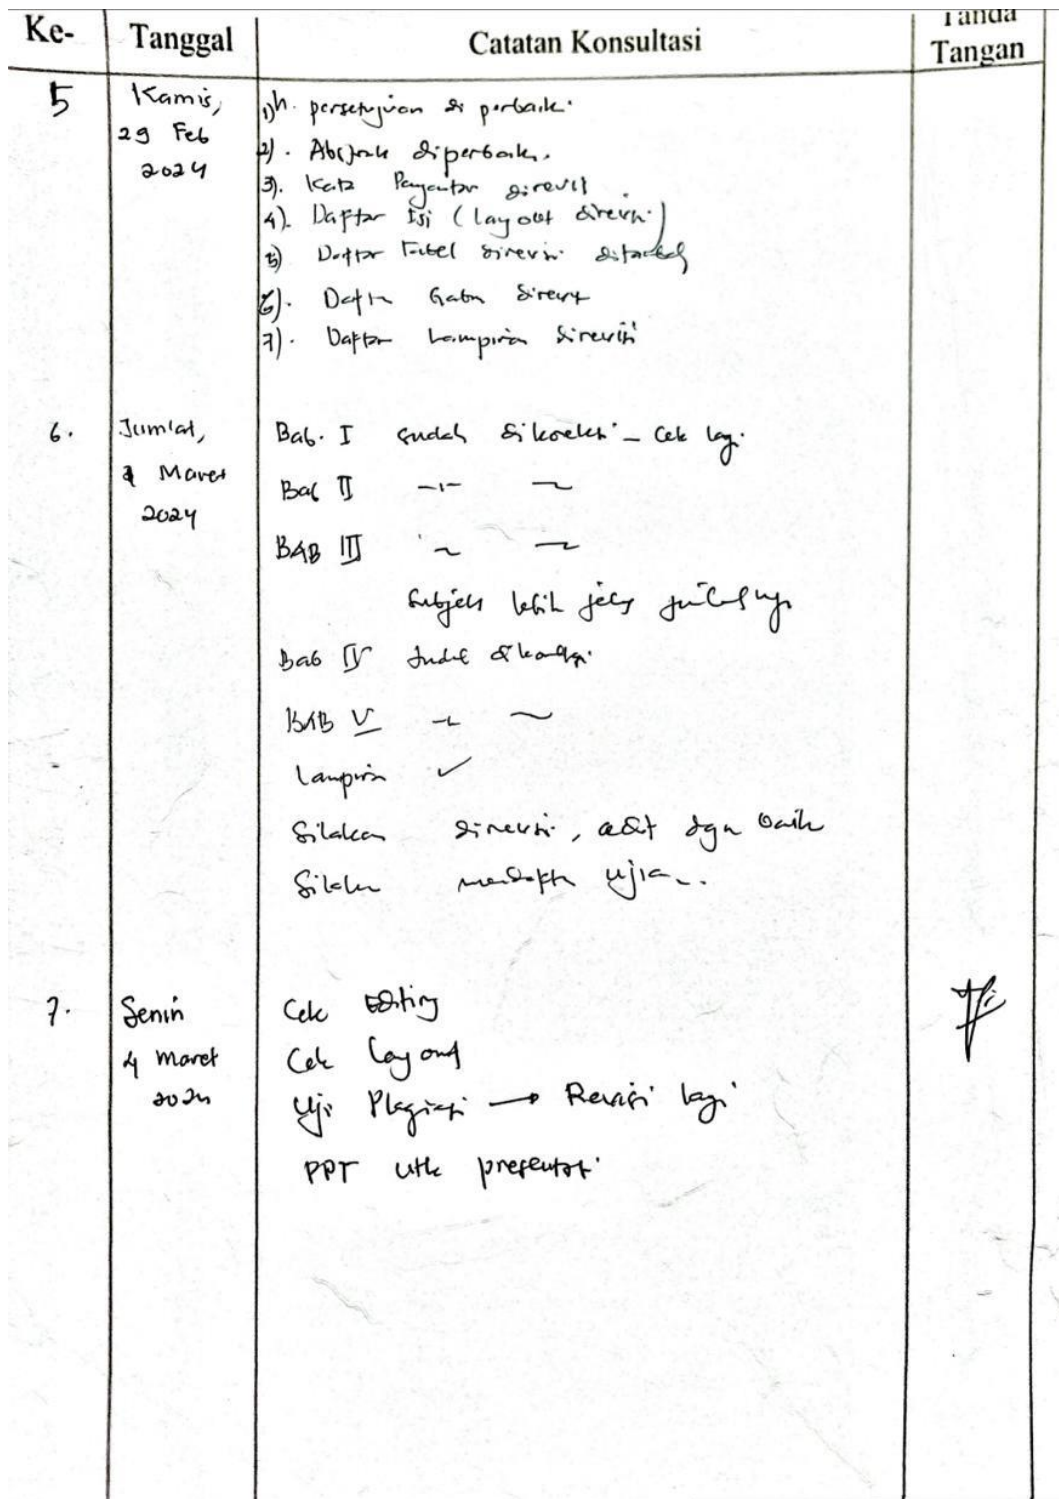 Ke- Tanggal Catatan Konsultasi Tanda Tangan
5 Kamis, 29 Feb 2024
1) h. persetujuan di perbaiki
2). Abstrak diperbaiki.
3). Kata Pengantar direvisi
4). Daftar Isi (layout direvisi)
5) Daftar Tabel direvisi
6). Daftar direvisi
7). Daftar Lampiran direvisi
6. Jumlat, 1 Maret 2024
Bab. I sudah dikoreksi - Cek lagi
Bab II
BAB III
Subjek lebih jelas
Bab IV sudah
BAB V
Lampiran ✓
Silakan direvisi, edit dgn baik
Silakan mendaftar ujian..
7. Senin 4 Maret 2024
Cek Editing
Cek Layout
Uji Plagiasi → Revisi lagi
PPT utk presentasi